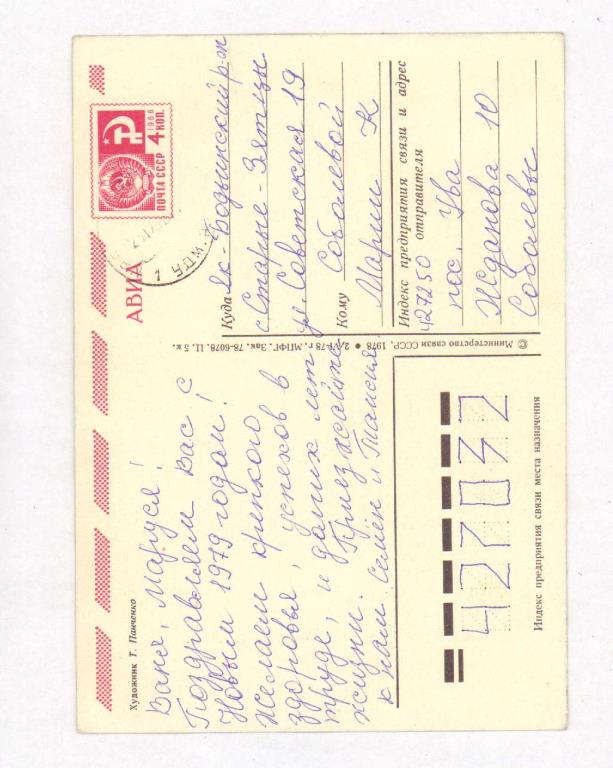 Художник Т. Панченко
Ваня, Маруся!
Поздравляем Вас с
Новым 1979 годом!
Желаем крепкого
здоровья, успехов в
труде, и долгих лет
жизни. Приезжайте
к нам. Семен и Таисия
АВИА
1966
4 КОП.
ПОЧТА СССР
Куда Як-Бодьинский р-н
с Старые-Зятцы
ул. Советская 19
Кому Соболевой
Марии К
Индекс предприятия связи и адрес
отправителя
427250
пос. Ува
Жданова 10
Соболевы
© Министерство связи СССР, 1978 • 2/VI-78 г. МПФГ. Зак. 78-6078. Ц. 5 к.
427032
Индекс предприятия связи места назначения